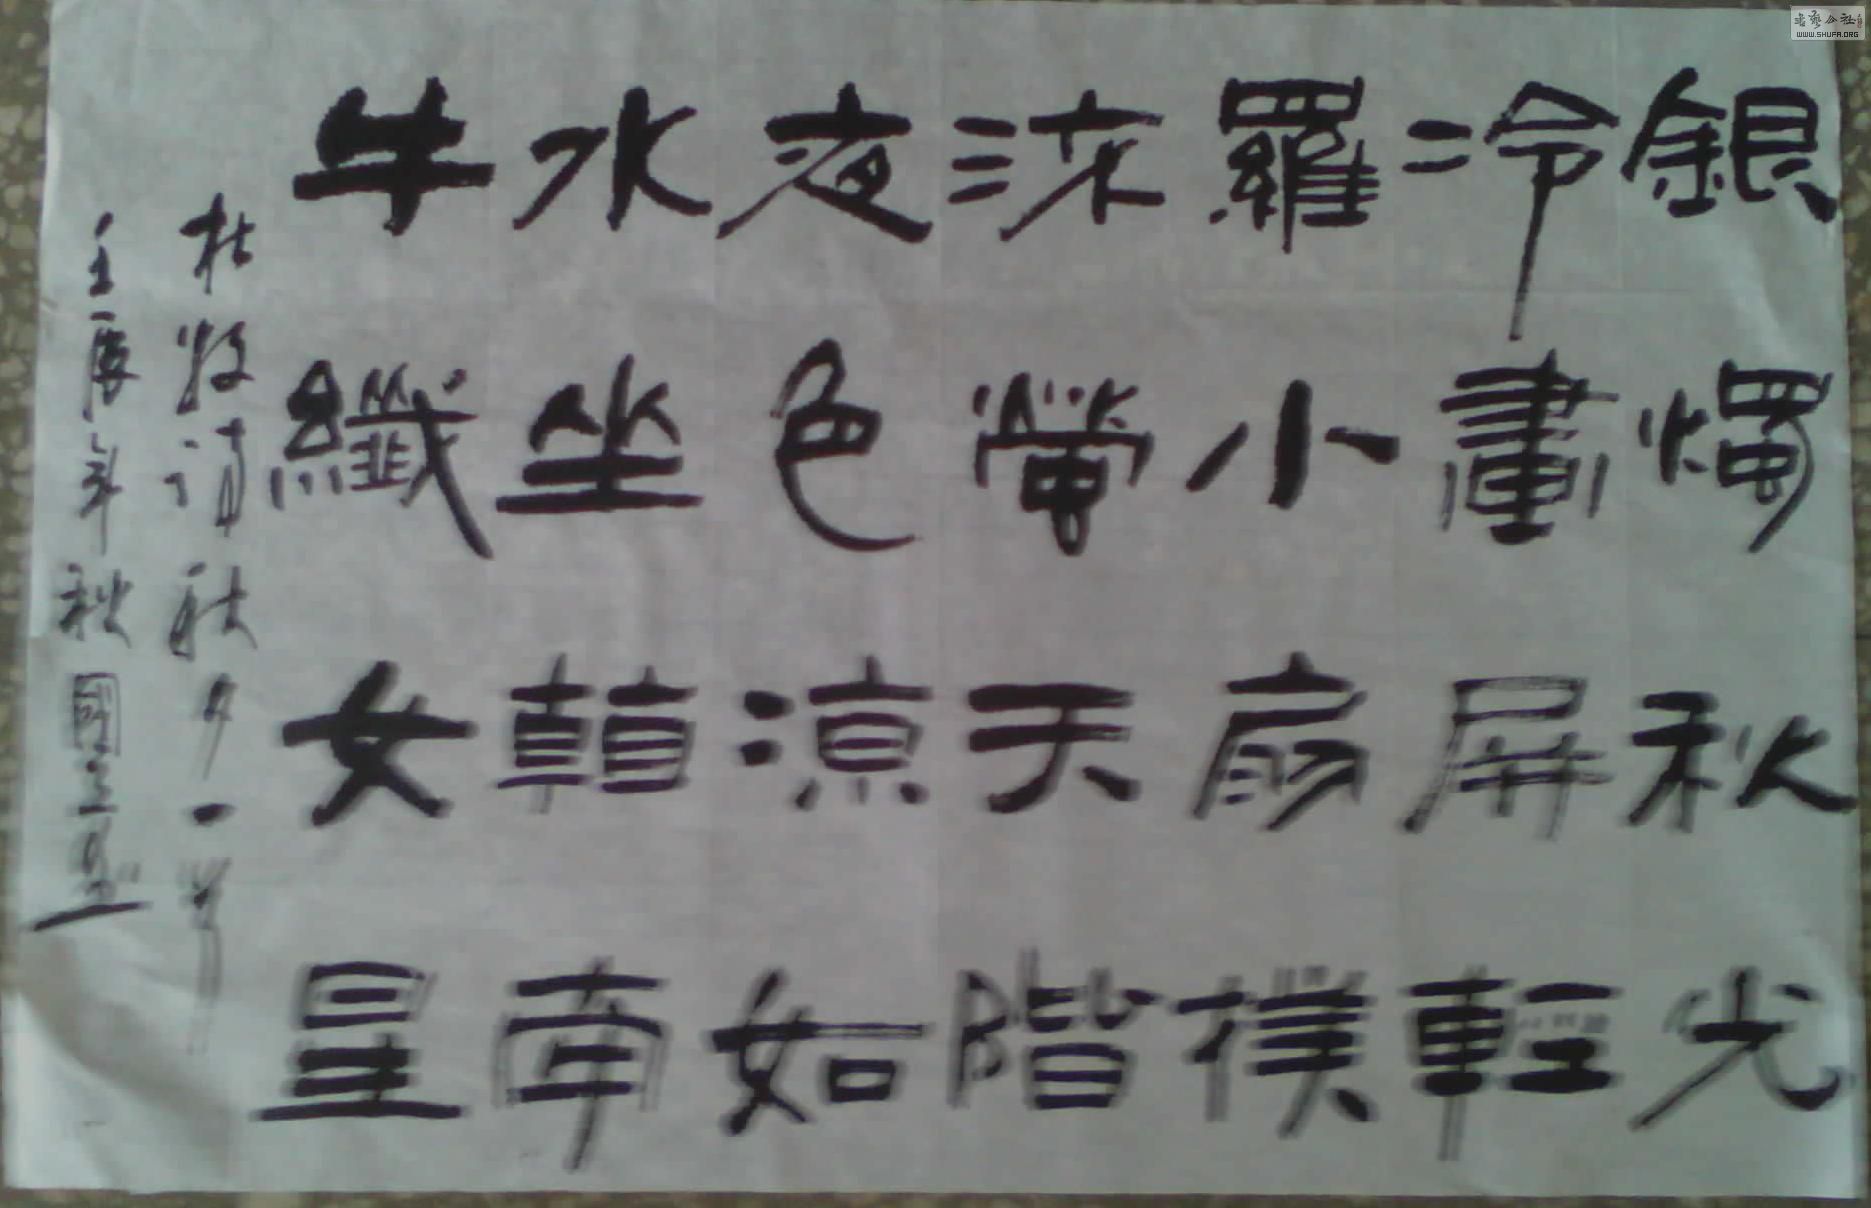 銀燭秋光
冷畫屏輕
羅小扇撲
流螢天階
夜色凉如
水坐看牽
牛纖女星
杜牧詩秋夕一首
壬辰年秋國
書藝公社
WWW.SHUFA.ORG